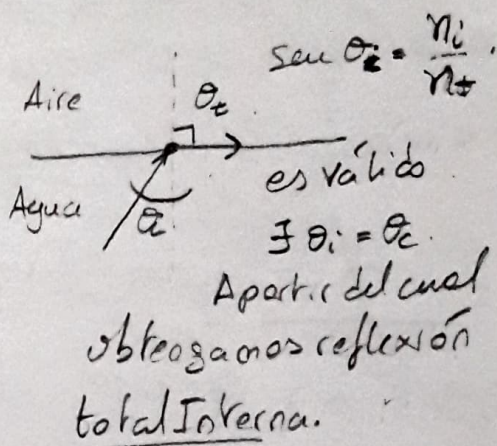 sen θi = ni/nt.
Aire
θt
es válido
Agua
θi
∃ θi = θc.
Apartir del cual
obtengamos reflexión
total Interna.